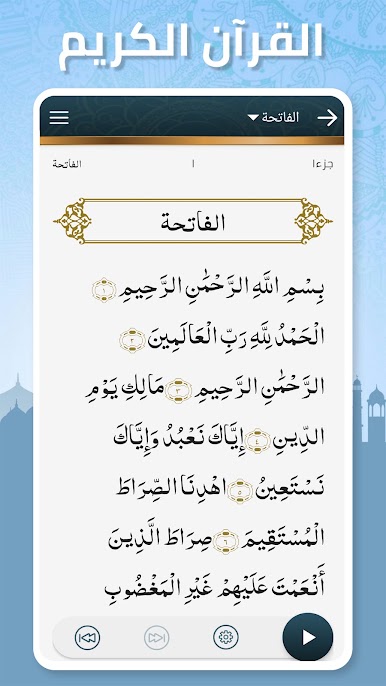 القرآن الكريم
الفاتحة
جزء١ ١ الفاتحة
الفاتحة
بِسْمِ اللَّهِ الرَّحْمَٰنِ الرَّحِيمِ ١
الْحَمْدُ لِلَّهِ رَبِّ الْعَالَمِينَ ٢
الرَّحْمَٰنِ الرَّحِيمِ ٣ مَالِكِ يَوْمِ
الدِّينِ ٤ إِيَّاكَ نَعْبُدُ وَإِيَّاكَ
نَسْتَعِينُ ٥ اهْدِنَا الصِّرَاطَ
الْمُسْتَقِيمَ ٦ صِرَاطَ الَّذِينَ
أَنْعَمْتَ عَلَيْهِمْ غَيْرِ الْمَغْضُوبِ